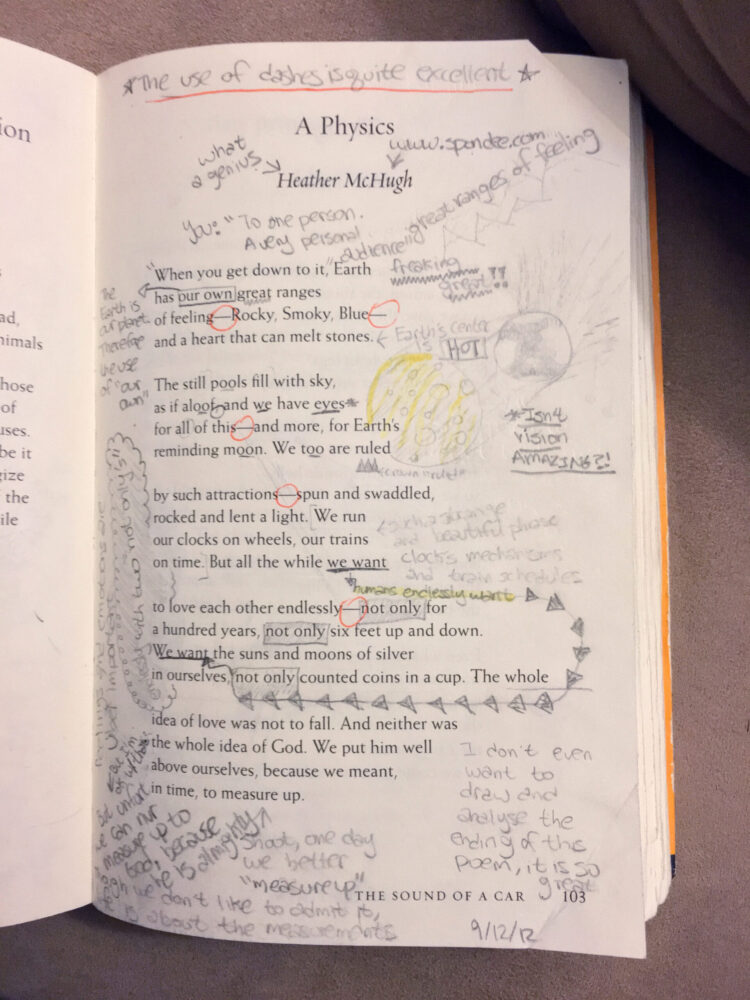 ion
ad,
nimals
hose
of
uses.
be it
gize
the
ile
*The use of dashes is quite excellent*
A Physics
what
a genius
www.spondee.com
Heather McHugh
You: "To one person.
A very personal
audience"
"great ranges of feeling
"When you get down to it," Earth
has our own great ranges
of feeling—Rocky, Smoky, Blue—
and a heart that can melt stones.
freaking
great!!
Earth's center
is HOT
The
Earth is
our planet.
Therefore
the use
of "our
own"
The still pools fill with sky,
as if aloof, and we have eyes*
for all of this—and more, for Earth's
reminding moon. We too are ruled
*Isn't
vision
AMAZING?!
by such attractions—spun and swaddled,
rocked and lent a light. We run
our clocks on wheels, our trains
on time. But all the while we want
such a strange
and beautiful phrase
clock's mechanisms
and train schedules
humans endlessly want
to love each other endlessly—not only for
a hundred years, not only six feet up and down.
We want the suns and moons of silver
in ourselves, not only counted coins in a cup. The whole
idea of love was not to fall. And neither was
the whole idea of God. We put him well
above ourselves, because we meant,
in time, to measure up.
I don't even
want to
draw and
analyse the
ending of this
poem, it is so
great
we can
measure up to
God, because
he is almighty
Shoot, one day
we better
"measure up"
don't like to admit it,
is about the measurements
THE SOUND OF A CAR 103
9/12/12